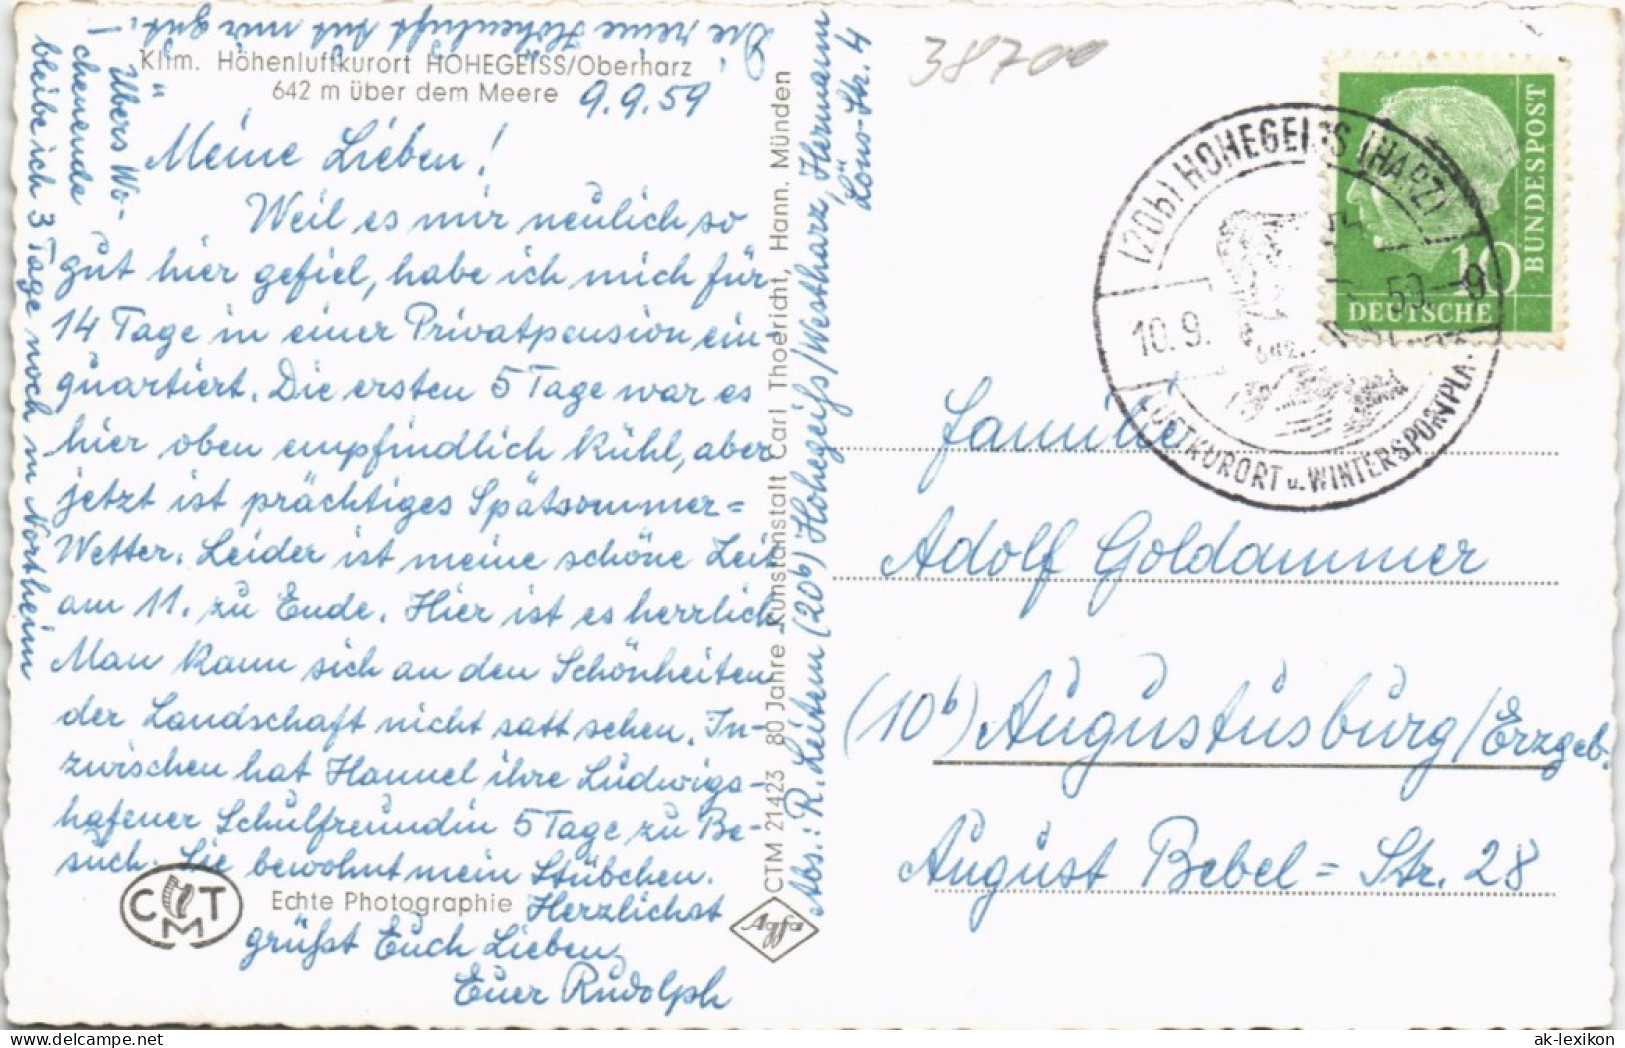 Klim. Höhenluftkurort HOHEGEISS/Oberharz
642 m über dem Meere 9.9.59
Meine Lieben!
Weil es mir neulich so
gut hier gefiel, habe ich mich für
14 Tage in einer Privatpension ein-
quartiert. Die ersten 5 Tage war es
hier oben empfindlich kühl, aber
jetzt ist prächtiges Spätsommer=
Wetter. Leider ist meine schöne Zeit
am 11. zu Ende. Hier ist es herrlich.
Man kann sich an den Schönheiten
der Landschaft nicht satt sehen. In-
zwischen hat Hannel ihre Ludwigs-
hafener Schulfreundin 5 Tage zu Be-
such. Sie bewohnt mein Stübchen.
Herzlichst
grüßt Euch Lieben
Euer Rudolph
Übers Wo-
chenende
bleibe ich 3 Tage noch in Northeim
Die reine Höhenluft tut mir gut!
CMT
Echte Photographie
Agfa
CTM 21423 80 Jahre Kunstanstalt Carl Thoericht, Hann. Münden
Abs.: R. Leitem (20b) Hohegeiß/Westharz, Hermann
Löns-Str. 4
38700
(20b) HOHEGEISS (HARZ)
10.9.59.-9
LUFTKURORT u. WINTERSPORTPLA
DEUTSCHE
BUNDESPOST
10
Familie
Adolf Goldammer
(10b) Augustusburg/Erzgeb.
August Bebel=Str. 28
ak-lexikon